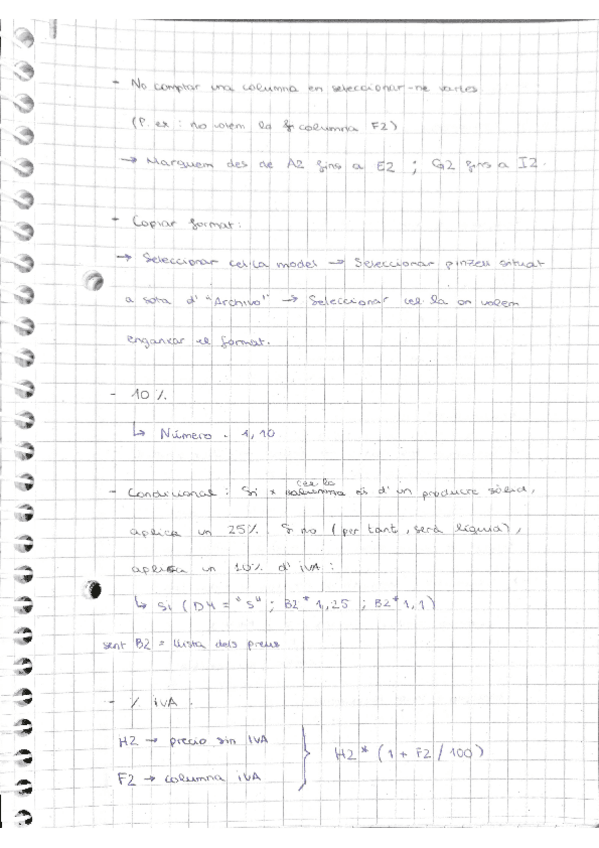 - No comptar una columna en seleccionar-ne varies
(P. ex : no volem la columna F2)
→ Marquem des de A2 fins a E2 ; G2 fins a I2.
- Copiar format:
→ Seleccionar cel·la model → Seleccionar pinzell situat
a sota d' "Archivo" → Seleccionar cel·la on volem
enganxar el format.
- 10 %
↳ Número · 1,10
- Condicional : Si x cel·la és d' un producte sòlid,
aplica un 25%. Si no (per tant, serà líquid),
aplica un 10% d' iVA :
↳ Si (D4 = "S" ; B2 * 1,25 ; B2 * 1,1)
sent B2 = llista dels preus
- % iVA :
H2 → precio sin IVA
F2 → columna iVA
H2 * (1 + F2 / 100)